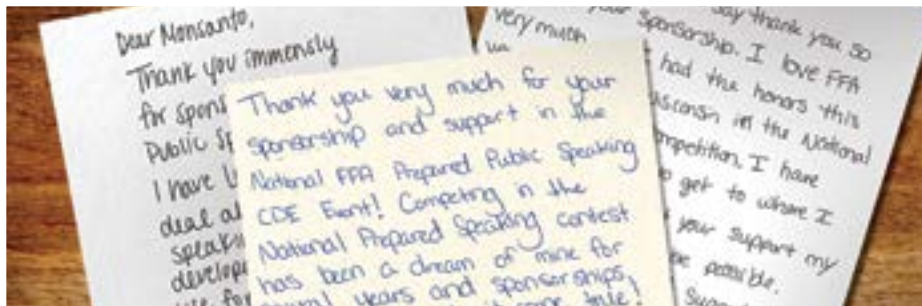 Dear Monsanto,
Thank you immensly
for spons
Public Sp
I have l
deal a
speaki
develop
Thank you very much for your
sponsorship and support in the
National FFA Prepared Public Speaking
CDE Event! Competing in the
National Prepared Speaking contest
has been a dream of mine for
years and sponsorships,
say thank you so
very much your sponsorship. I love FFA
had the honors this
isconsin in the National
mpetition. I have
get to where I
your support my
be possible.